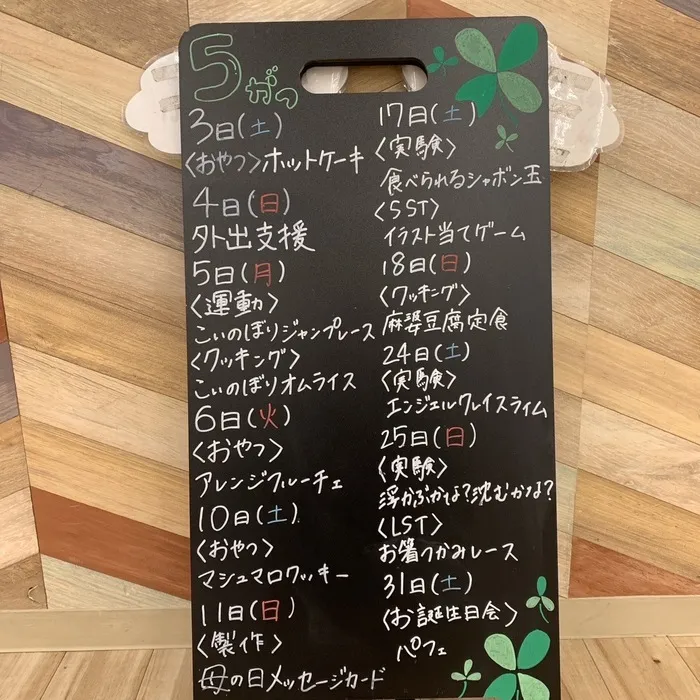 5がつ
3日(土)
〈おやつ〉ホットケーキ
4日(日)
外出支援
5日(月)
〈運動〉
こいのぼりジャンプレース
〈クッキング〉
こいのぼりオムライス
6日(火)
〈おやつ〉
アレンジフルーチェ
10日(土)
〈おやつ〉
マシュマロクッキー
11日(日)
〈製作〉
母の日メッセージカード
17日(土)
〈実験〉
食べられるシャボン玉
〈SST〉
イラスト当てゲーム
18日(日)
〈クッキング〉
麻婆豆腐定食
24日(土)
〈実験〉
エンジェルクレイスライム
25日(日)
〈実験〉
浮かぶかな?沈むかな?
〈LST〉
お箸つかみレース
31日(土)
〈お誕生日会〉
パフェ